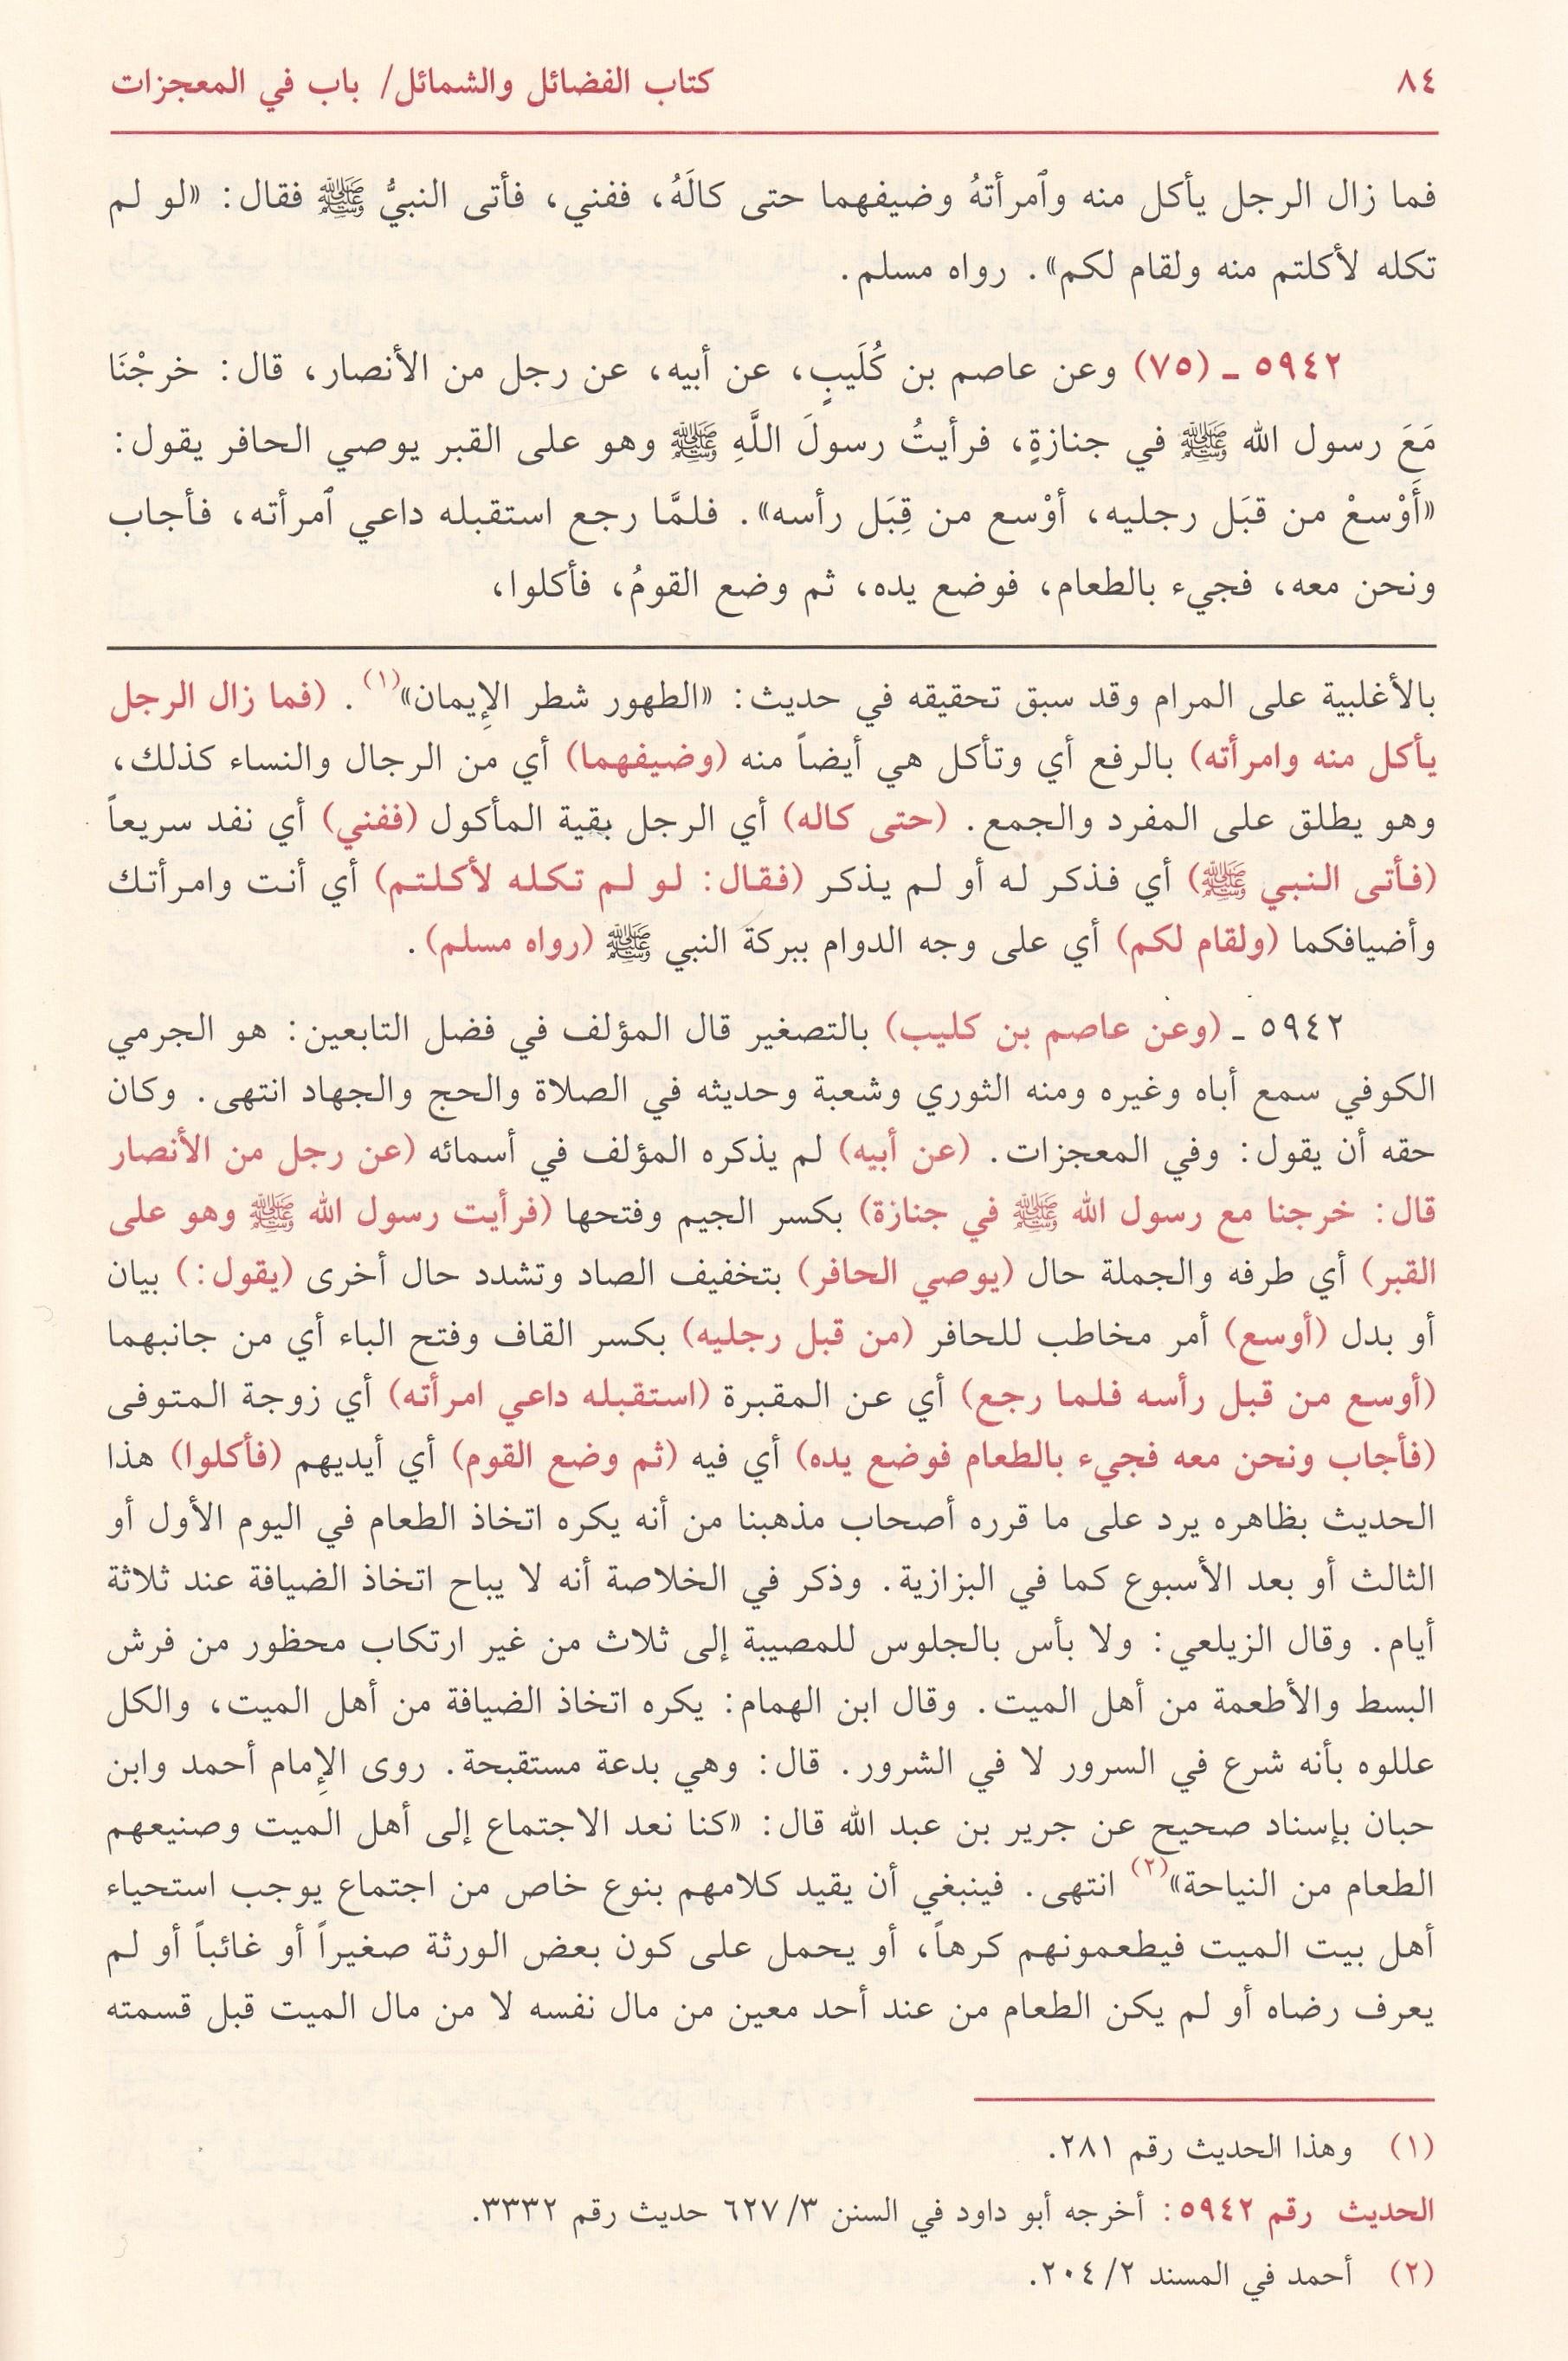 ٨٤
كتاب الفضائل والشمائل/ باب في المعجزات
فما زال الرجل يأكل منه وٱمرأتهُ وضيفهما حتى كالَهُ، ففني، فأتى النبيُّ ﷺ فقال: «لو لم
تكله لأكلتم منه ولقام لكم». رواه مسلم.
٥٩٤٢ ـ (٧٥) وعن عاصم بن كُلَيبٍ، عن أبيه، عن رجل من الأنصار، قال: خرجْنَا
مَعَ رسول الله ﷺ في جنازةٍ، فرأيتُ رسولَ اللَّهِ ﷺ وهو على القبر يوصي الحافر يقول:
«أَوْسعْ من قبَل رجليه، أوْسع من قِبَل رأسه». فلمَّا رجع استقبله داعي ٱمرأته، فأجاب
ونحن معه، فجيء بالطعام، فوضع يده، ثم وضع القومُ، فأكلوا،
بالأغلبية على المرام وقد سبق تحقيقه في حديث: «الطهور شطر الإيمان»(١). (فما زال الرجل
يأكل منه وامرأته) بالرفع أي وتأكل هي أيضاً منه (وضيفهما) أي من الرجال والنساء كذلك،
وهو يطلق على المفرد والجمع. (حتى كاله) أي الرجل بقية المأكول (ففني) أي نفد سريعاً
(فأتى النبي ﷺ) أي فذكر له أو لم يذكر (فقال: لو لم تكله لأكلتم) أي أنت وامرأتك
وأضيافكما (ولقام لكم) أي على وجه الدوام ببركة النبي ﷺ (رواه مسلم).
٥٩٤٢ ـ (وعن عاصم بن كليب) بالتصغير قال المؤلف في فضل التابعين: هو الجرمي
الكوفي سمع أباه وغيره ومنه الثوري وشعبة وحديثه في الصلاة والحج والجهاد انتهى. وكان
حقه أن يقول: وفي المعجزات. (عن أبيه) لم يذكره المؤلف في أسمائه (عن رجل من الأنصار
قال: خرجنا مع رسول الله ﷺ في جنازة) بكسر الجيم وفتحها (فرأيت رسول الله ﷺ وهو على
القبر) أي طرفه والجملة حال (يوصي الحافر) بتخفيف الصاد وتشدد حال أخرى (يقول:) بيان
أو بدل (أوسع) أمر مخاطب للحافر (من قبل رجليه) بكسر القاف وفتح الباء أي من جانبهما
(أوسع من قبل رأسه فلما رجع) أي عن المقبرة (استقبله داعي امرأته) أي زوجة المتوفى
(فأجاب ونحن معه فجيء بالطعام فوضع يده) أي فيه (ثم وضع القوم) أي أيديهم (فأكلوا) هذا
الحديث بظاهره يرد على ما قرره أصحاب مذهبنا من أنه يكره اتخاذ الطعام في اليوم الأول أو
الثالث أو بعد الأسبوع كما في البزازية. وذكر في الخلاصة أنه لا يباح اتخاذ الضيافة عند ثلاثة
أيام. وقال الزيلعي: ولا بأس بالجلوس للمصيبة إلى ثلاث من غير ارتكاب محظور من فرش
البسط والأطعمة من أهل الميت. وقال ابن الهمام: يكره اتخاذ الضيافة من أهل الميت، والكل
عللوه بأنه شرع في السرور لا في الشرور. قال: وهي بدعة مستقبحة. روى الإمام أحمد وابن
حبان بإسناد صحيح عن جرير بن عبد الله قال: «كنا نعد الاجتماع إلى أهل الميت وصنيعهم
الطعام من النياحة»(٢) انتهى. فينبغي أن يقيد كلامهم بنوع خاص من اجتماع يوجب استحياء
أهل بيت الميت فيطعمونهم كرهاً، أو يحمل على كون بعض الورثة صغيراً أو غائباً أو لم
يعرف رضاه أو لم يكن الطعام من عند أحد معين من مال نفسه لا من مال الميت قبل قسمته
(١) وهذا الحديث رقم ٢٨١.
الحديث رقم ٥٩٤٢: أخرجه أبو داود في السنن ٣/ ٦٢٧ حديث رقم ٣٣٣٢.
(٢) أحمد في المسند ٢/ ٢٠٤.